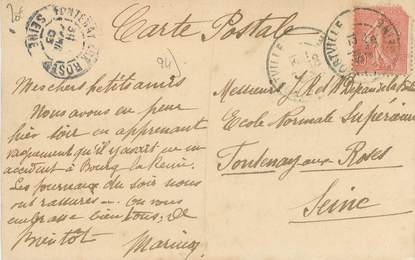 Carte Postale
FONTENAY AUX ROSES
SEINE
Mes chers petits amis
Nous avons eu peur
hier soir en apprenant
vaguement qu'il y avait eu un
accident à Bourg la Reine.
Les journaux du soir nous
ont rassurés... On vous
embrasse bien tous, de
Bientôt
Messieurs J. P. et
Ecole Normale Supérieure
Fontenay aux Roses
Seine